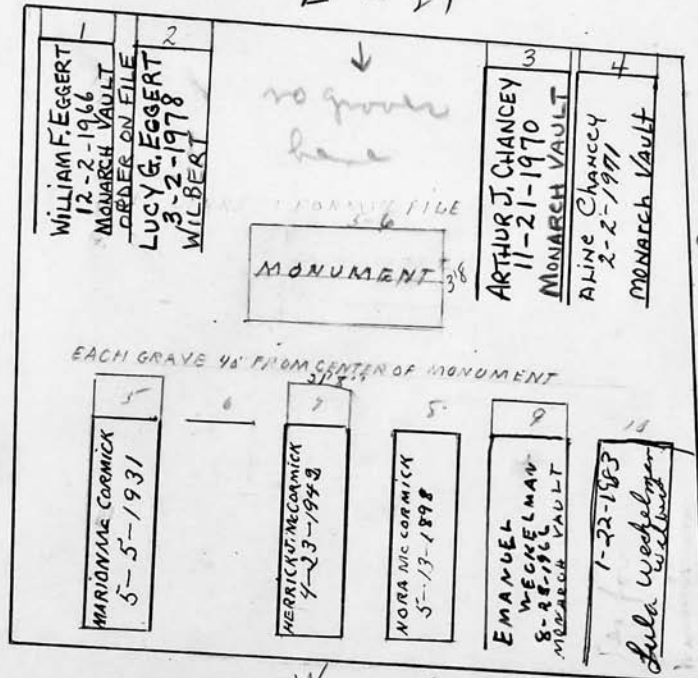 1
WILLIAM F. EGGERT
12-2-1966
MONARCH VAULT
ORDER ON FILE
2
LUCY G. EGGERT
3-2-1978
WILBERT
no graves
here
3
ARTHUR J. CHANCEY
11-21-1970
MONARCH VAULT
4
Aline Chancey
2-2-1971
MONARCH VAULT
FILE
5-6
MONUMENT
3'8
EACH GRAVE FROM CENTER OF MONUMENT
5
MARION Mc CORMICK
5-5-1931
6
7
HERRICK J. McCORMICK
4-23-1942
NORA Mc CORMICK
5-13-1898
9
EMANUEL
WECKELMAN
8-28-1966
MONARCH VAULT
10
1-22-1983
Lula Weckelman
Wilbert
W